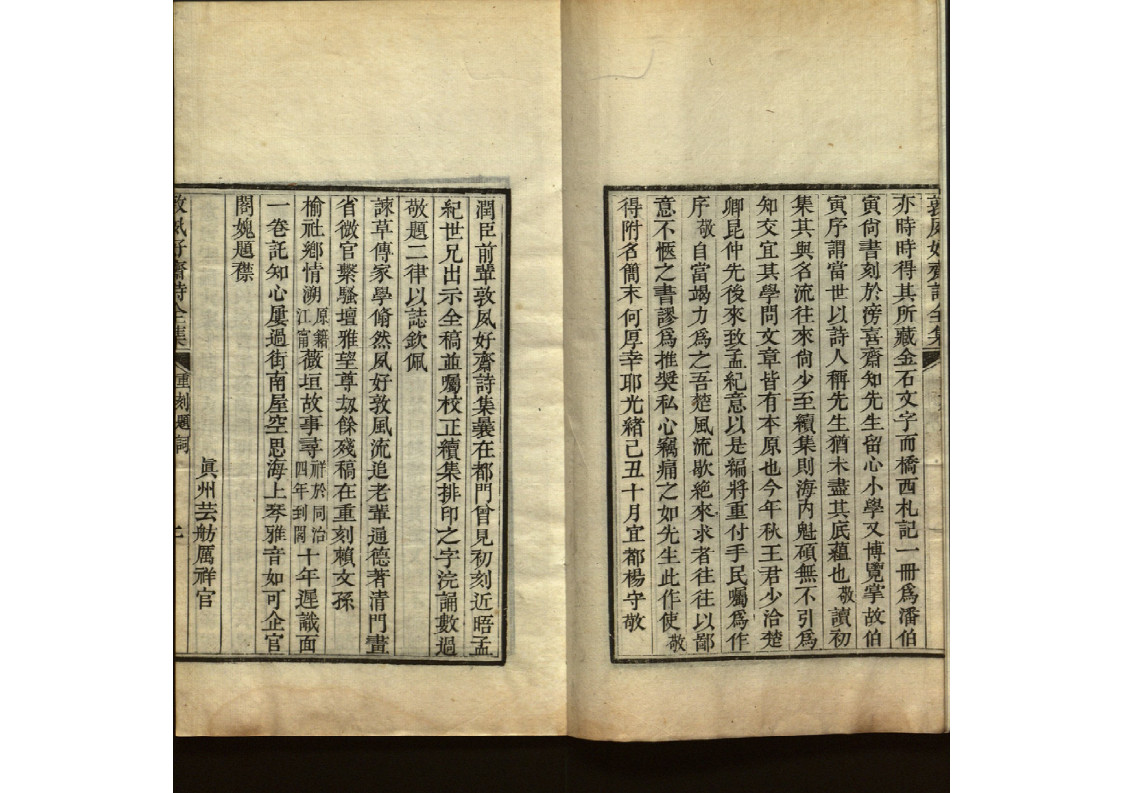 敦夙好齋詩全集
亦時時得其所藏金石文字而橋西札記一冊爲潘伯
寅尙書刻於滂喜齋知先生留心小學又博覽掌故伯
寅序謂當世以詩人稱先生猶未盡其底蘊也敬讀初
集其與名流往來尙少至續集則海內魁碩無不引爲
知交宜其學問文章皆有本原也今年秋王君少洽楚
卿昆仲先後來致孟紀意以是編將重付手民囑爲作
序敬自當竭力爲之吾楚風流歇絕來求者往往以鄙
意不愜之書謬爲推奬私心竊痛之如先生此作使敬
得附名簡末何厚幸耶光緒己丑十月宜都楊守敬
潤臣前輩敦夙好齋詩集曩在都門曾見初刻近晤孟
紀世兄出示全稿並囑校正續集排印之字浣誦數過
敬題二律以誌欽佩
諫草傳家學脩然夙好敦風流追老輩通德著清門畫
省微官繫騷壇雅望尊刼餘殘稿在重刻賴文孫
榆社鄉情溯原籍江甯薇垣故事尋祥於同治四年到閣十年遲識面
一卷託知心屢過街南屋空思海上琴雅音如可企官
閣媿題襟
眞州芸舫厲祥官
敦夙好齋詩全集
重刻題詞
二